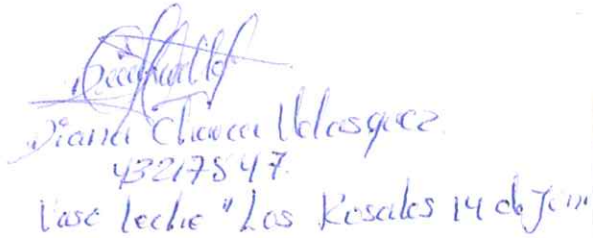 Diana Chavez Velasquez
43217547.
Vaso leche "Los Rosales 14 de